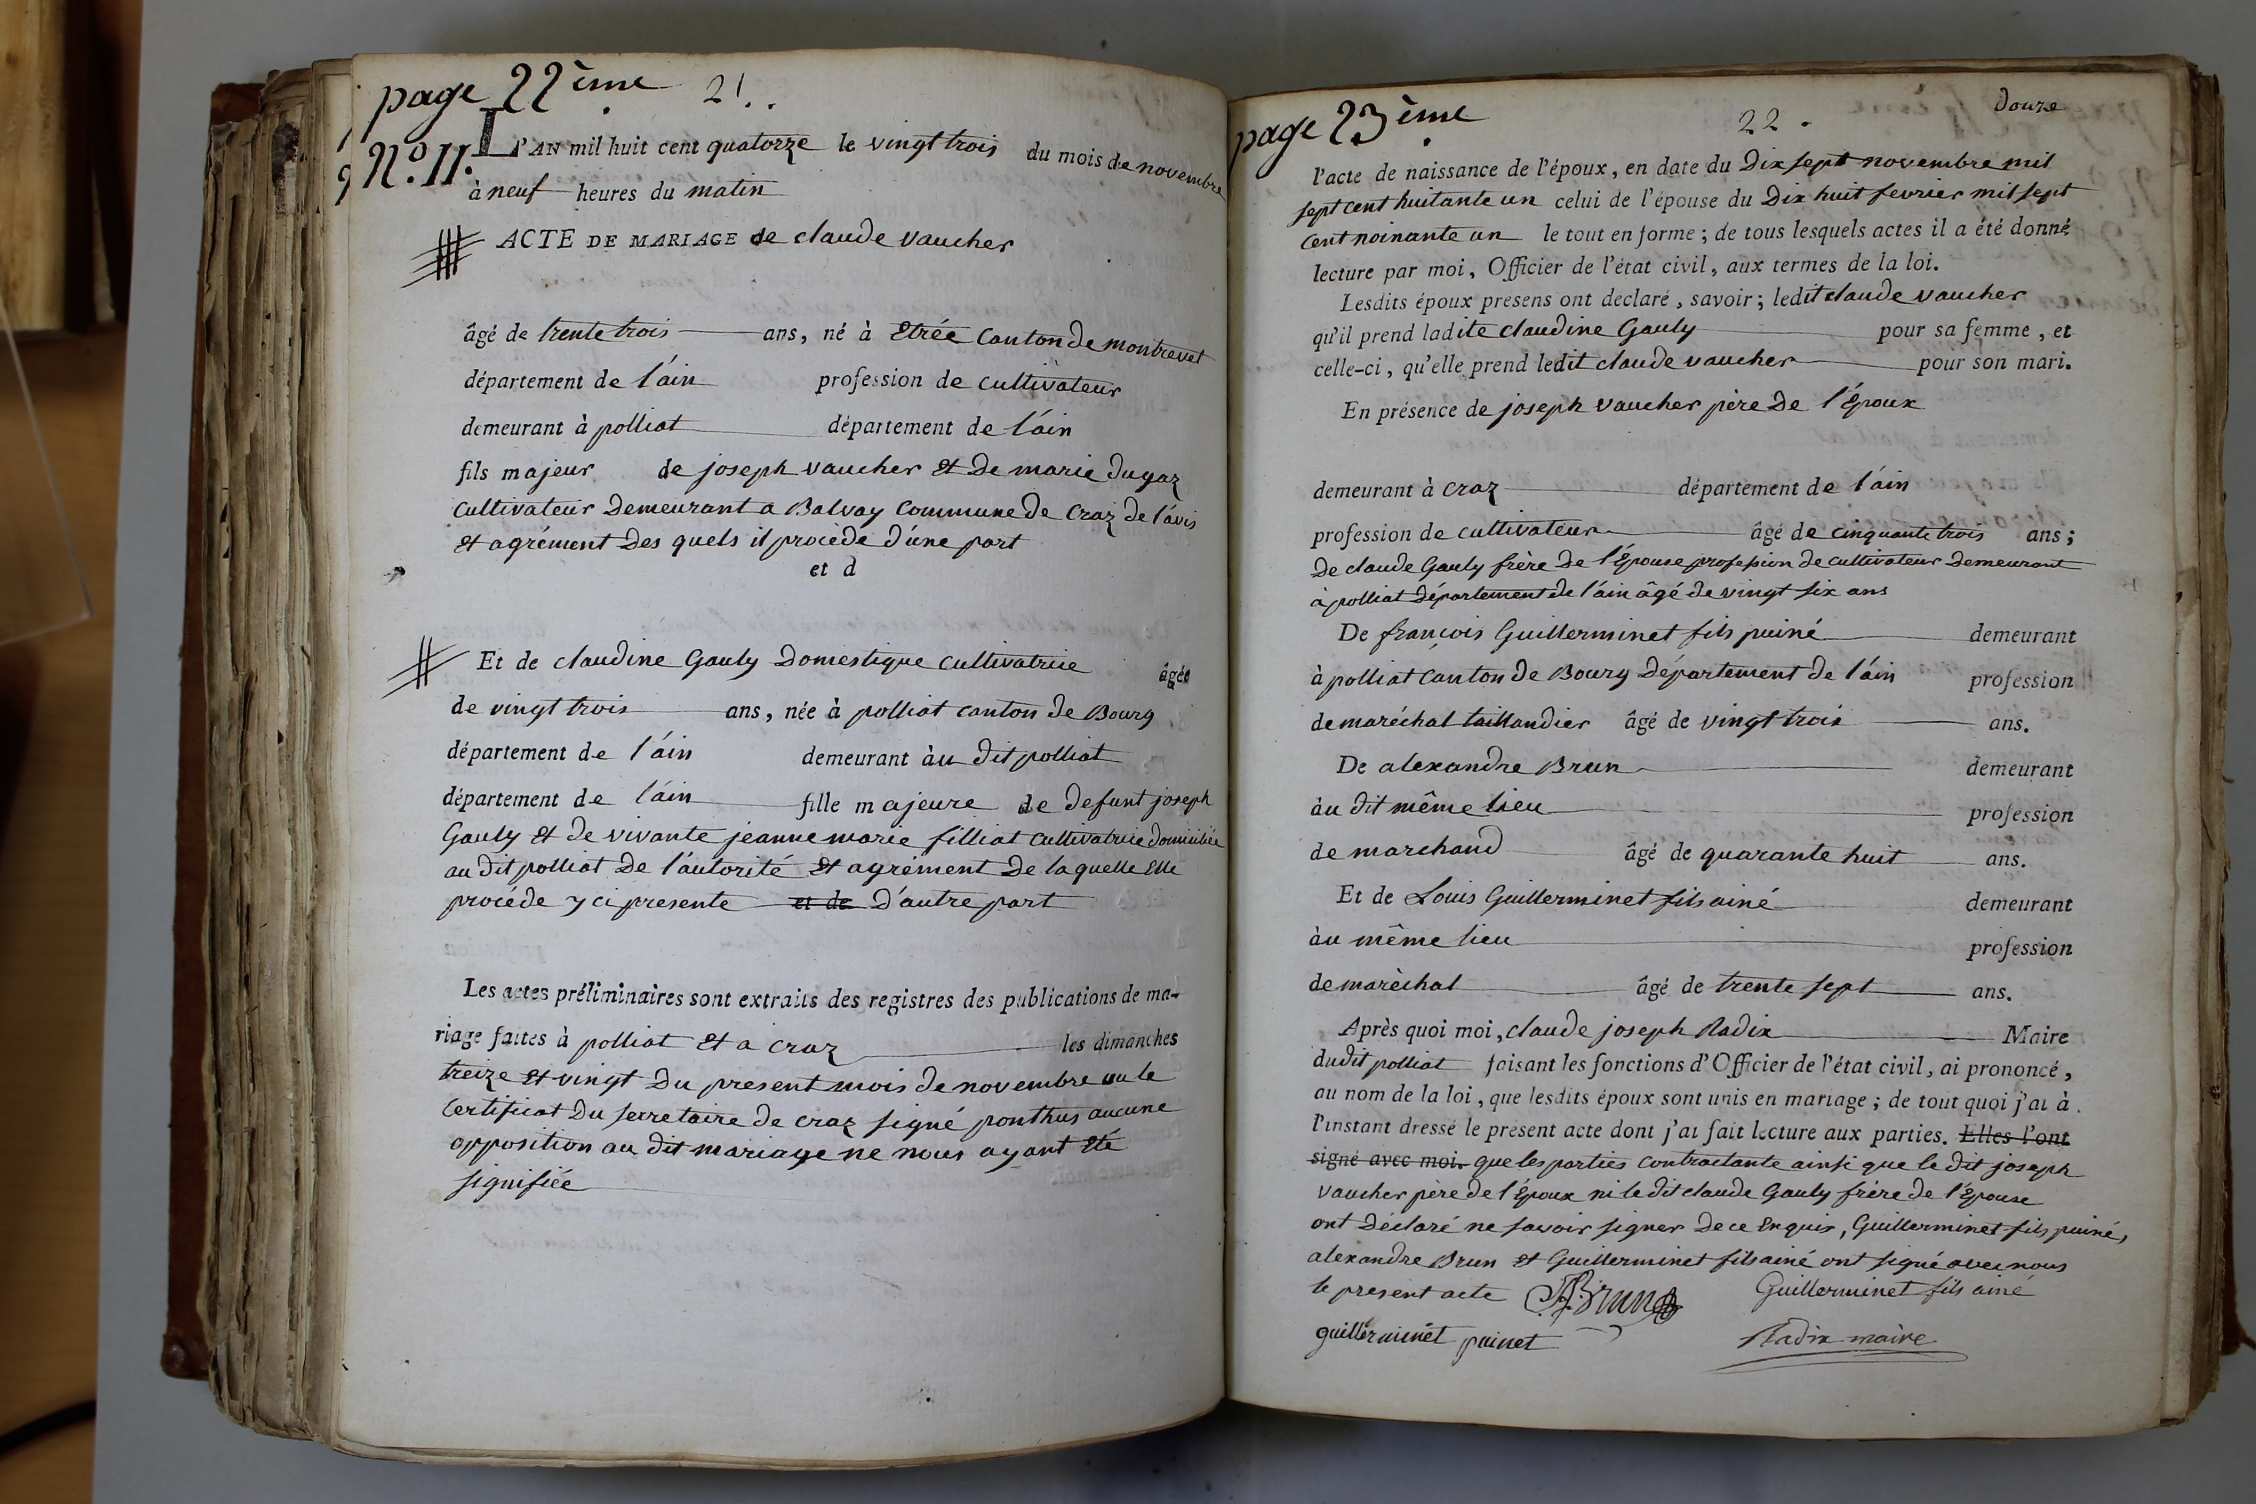 page 22ème 21..
N.o 11. L'AN mil huit cent quatorze le vingt trois du mois de novembre
à neuf heures du matin
ACTE DE MARIAGE de claude vaucher
âgé de trente trois ans, né à Etrée canton de montrevet
département de l'ain profession de cultivateur
demeurant à polliat département de l'ain
fils majeur de joseph vaucher Et De marie dugaz
cultivateur Demeurant a Balvay Commune de Craz de l'avis
Et agrément Des quels il procède d'une part
et d
Et de claudine Gauly Domestique cultivatrice âgée
de vingt trois ans, née à polliat canton de Bourg
département de l'ain demeurant àu dit polliat
département de l'ain fille majeure de defunt joseph
Gauly Et de vivante jeanne marie filliat cultivatrice domiciliée
au dit polliat De l'autorité Et agrément De laquelle Elle
procéde y ci presente et de D'autre part
Les actes préliminaires sont extraits des registres des publications de ma-
riage faites à polliat Et a craz les dimanches
treize Et vingt Du present mois de novembre vu le
Certificat Du serretaire de craz signé ponthus aucune
opposition au dit mariage ne nous ayant Eté
signifiée
page 23ème 22. douze
l'acte de naissance de l'époux, en date du Dix sept novembre mil
sept cent huitante un celui de l'épouse du Dix huit fevrier mil sept
cent noinante un le tout en forme; de tous lesquels actes il a été donné
lecture par moi, Officier de l'état civil, aux termes de la loi.
Lesdits époux presens ont declaré, savoir; ledit claude vaucher
qu'il prend ladite claudine Gauly pour sa femme, et
celle-ci, qu'elle prend ledit claude vaucher pour son mari.
En présence de joseph vaucher père De l'Epoux
demeurant à craz département de l'ain
profession de cultivateur âgé de cinquante trois ans;
De claude Gauly frère De l'Epouse profession de cultivateur Demeurant
à polliat Département de l'ain âgé de vingt six ans
De françois Guillerminet fils puiné demeurant
à polliat Canton de Bourg Département de l'ain profession
de maréchal taillandier âgé de vingt trois ans.
De alexandre Brun demeurant
àu dit même lieu profession
de marchand âgé de quarante huit ans.
Et de Louis Guillerminet fils ainé demeurant
àu même lieu profession
de marèchal âgé de trente sept ans.
Après quoi moi, claude joseph Radix Maire
dudit polliat faisant les fonctions d'Officier de l'état civil, ai prononcé,
au nom de la loi, que lesdits époux sont unis en mariage; de tout quoi j'ai à
l'instant dressé le présent acte dont j'ai fait lecture aux parties. Elles l'ont
signé avec moi. que les parties contractante ainsi que le dit joseph
vaucher père de l'Epoux ni le dit claude Gauly frère de l'Epouse
ont Déclaré ne savoir signer De ce Enquis, Guillerminet fils puiné,
alexandre Brun Et Guillerminet fils ainé ont signé avec nous
le present acte ABrun Guillerminet fils ainé
guillerminet puinet Radix maire